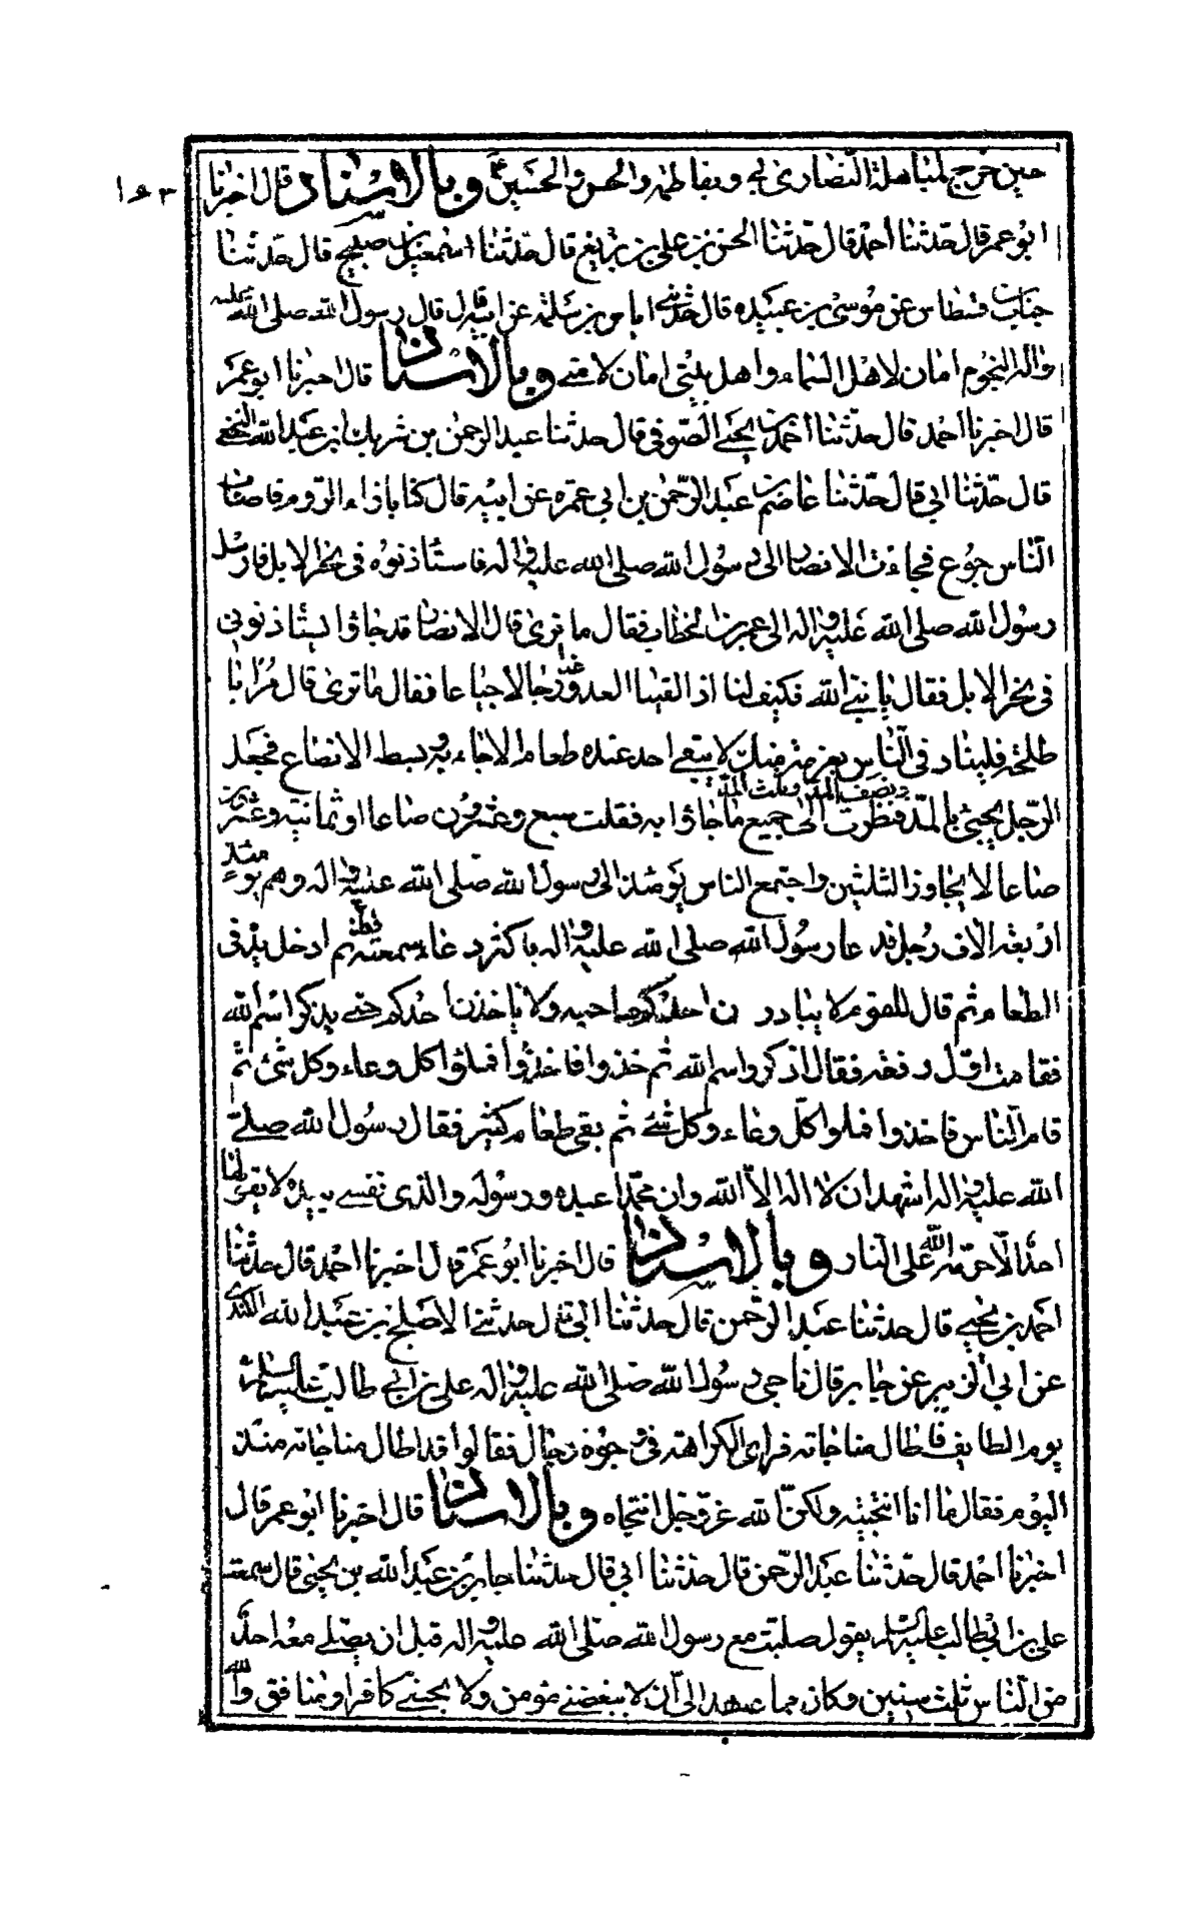 ١٦٣
حين خرج لمباهلة النصارى بي وبفاطمة والحسن والحسين وبالاسناد قال اخبرنا
ابو عمر قال حدثنا احمد قال حدثنا الحسن بن علي بن بزيع قال حدثنا اسمعيل بن صبيح قال حدثنا
جناب بن قسطاس عن موسى بن عبيده قال حدثني اياس بن سلمة عن ابيه قال قال رسول الله صلى الله عليه
واله النجوم امان لاهل السماء واهل بيتي امان لامتي وبالاسناد قال اخبرنا ابو عمر
قال اخبرنا احمد قال حدثنا احمد بن يحيى الصوفي قال حدثنا عبد الرحمن بن شريك بن عبد الله النخعي
قال حدثنا ابي قال حدثنا عاصم بن عبد الرحمن بن ابي عمره عن ابيه قال كنا بازاء الروم فاصاب
الناس جوع فجاءت الانصار الى رسول الله صلى الله عليه واله فاستاذنوه في نحر الابل فارسل
رسول الله صلى الله عليه واله الى عمر بن الخطاب فقال ما ترى قال الانصار قد جاؤا يستاذنوني
في نحر الابل فقال يا نبي الله فكيف لنا اذا لقينا العدو غدا رجالا جياعا فقال ما ترى قال مر ابا
طلحة فليناد في الناس بعزمة منك لا يبقى احد عنده طعام الا جاء به وبسط الانطاع فجعل
الرجل يجيئ بالمد ونصف المد وثلث المد فنظرت الى جميع ما جاؤا به فقلت سبع وعشرون صاعا او ثمانية وعشرون
صاعا لا يجاوز الثلثين واجتمع الناس يومئذ الى رسول الله صلى الله عليه واله وهم يومئذ
اربعة الاف رجل فدعا رسول الله صلى الله عليه واله باكثر دعاء سمعته قط ثم ادخل يده في
الطعام ثم قال للقوم لا يبادرن احدكم صاحبه ولا ياخذن احدكم حتى يذكر اسم الله
فقامت اول رفقه فقال اذكروا اسم الله ثم خذوا فاخذوا فملؤا كل وعاء وكل شئ ثم
قام الناس فاخذوا فملوا كل وعاء وكل شئ ثم بقي طعام كثير فقال رسول الله صلى
الله عليه واله اشهد ان لا اله الا الله وان محمدا عبده ورسوله والذي نفسي بيده لا يقولها
احد الا حرمه الله على النار وبالاسناد قال اخبرنا ابو عمر قال اخبرنا احمد قال حدثنا
احمد بن يحيى قال حدثنا عبد الرحمن قال حدثنا ابي قال حدثني الاجلح بن عبد الله الكندي
عن ابي الزبير عن جابر قال ناجى رسول الله صلى الله عليه واله علي بن ابي طالب عليه السلام
يوم الطايف فاطال مناجاته فراى الكراهة في وجوه رجال فقالوا قد اطال مناجاته منذ
اليوم فقال ما انا انتجيته ولكن الله عز وجل انتجاه وبالاسناد قال اخبرنا ابو عمر قال
اخبرنا احمد قال حدثنا عبد الرحمن قال حدثنا ابي قال حدثنا جابر بن عبد الله بن يحيى قال سمعت
علي بن ابي طالب عليه السلم يقول صليت مع رسول الله صلى الله عليه واله قبل ان يصلي معه احد
من الناس ثلث سنين وكان مما عهد الى ان لا يبغضني مؤمن ولا يحبني كافر او منافق والله